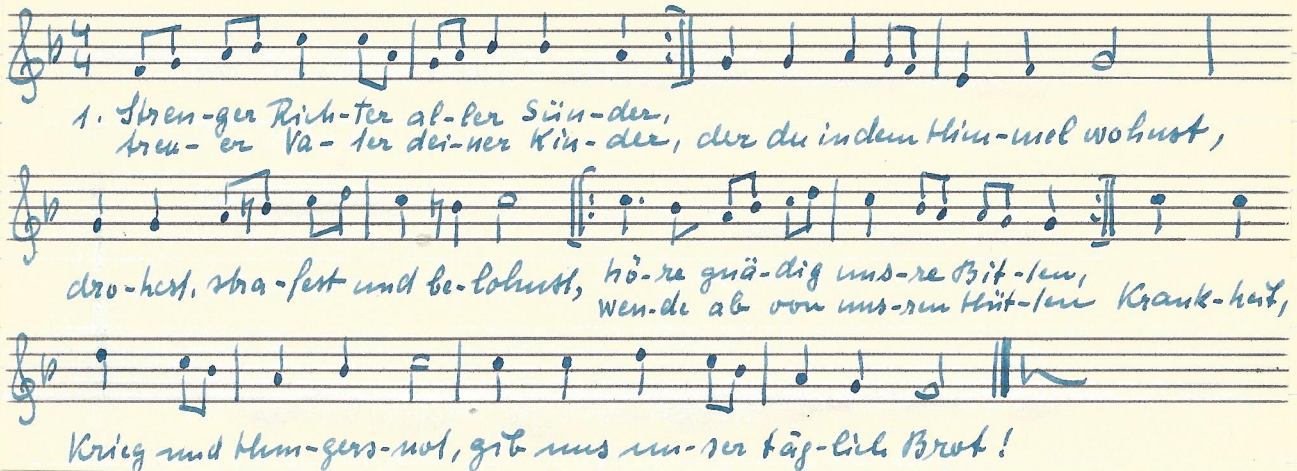 1. Stren-ger Rich-ter al-ler Sün-der,
treu-er Va-ter dei-ner Kin-der, der du in dem Him-mel wohnst,
dro-hest, stra-fest und be-lohnst, hö-re gnä-dig uns-re Bit-ten,
wen-de ab von uns-ren Hüt-ten Krank-heit,
Krieg und Hun-gers-not, gib uns un-ser täg-lich Brot!